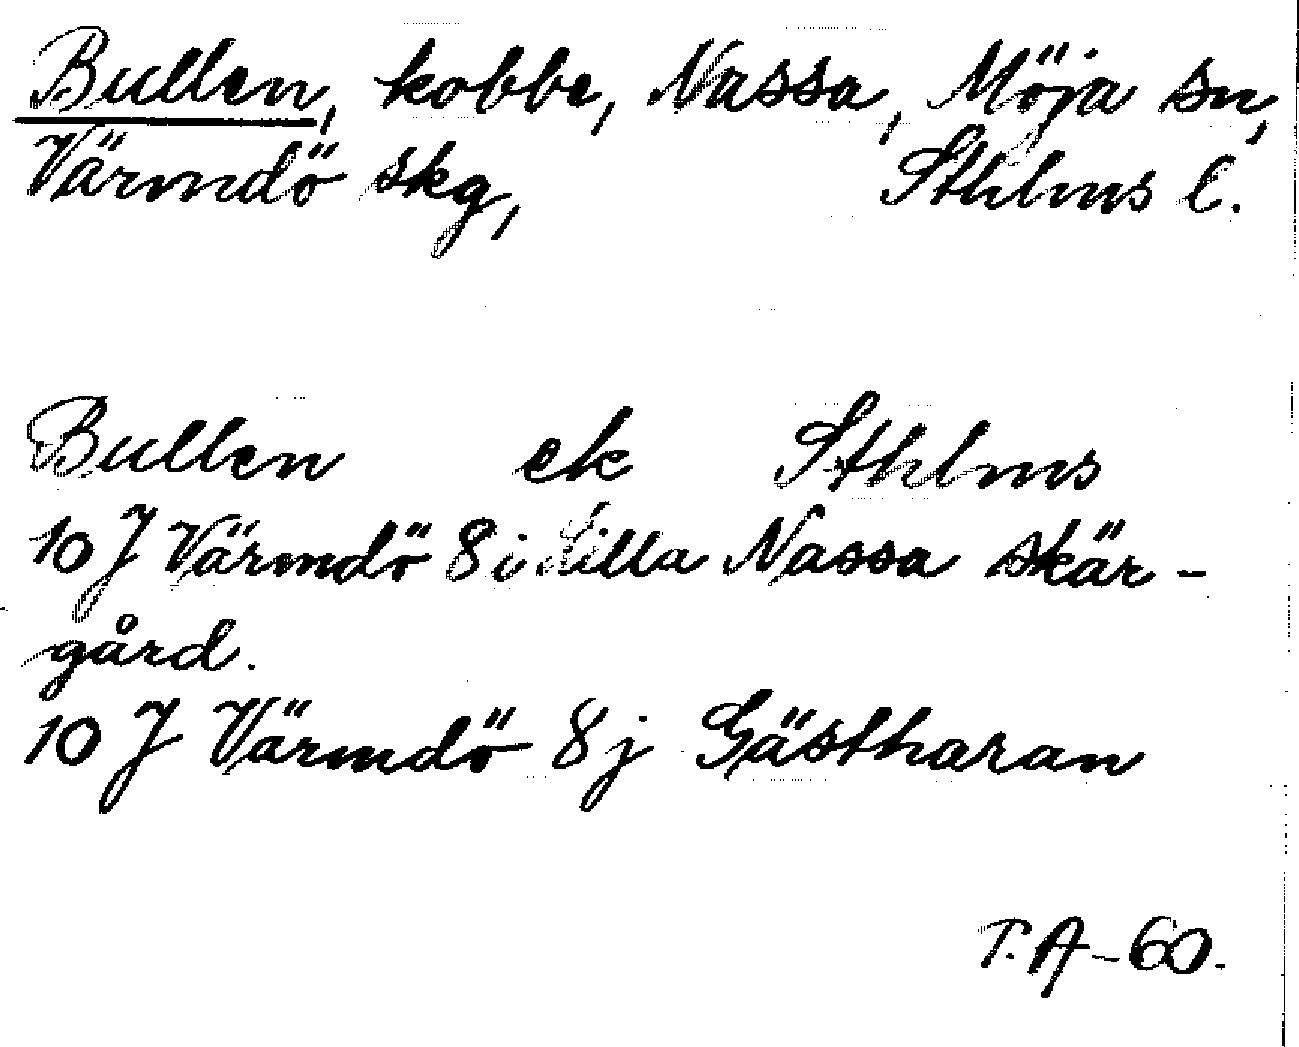 Bullen, kobbe, Nassa, Möja sn,
Värmdö skg, Sthlms l.
Bullen ek Sthlms
10 J Värmdö 8 i Lilla Nassa skär-
gård.
10 J Värmdö 8 j Gästharan
T. A - 60.